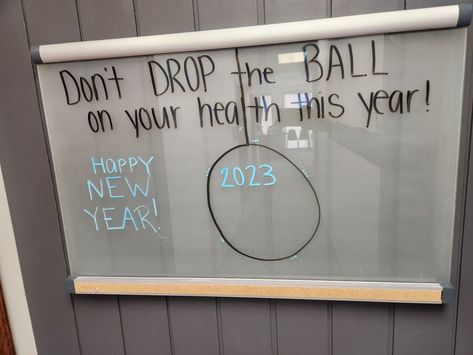 Don't DROP the BALL
on your health this year!
HAPPY
NEW
YEAR!
2023